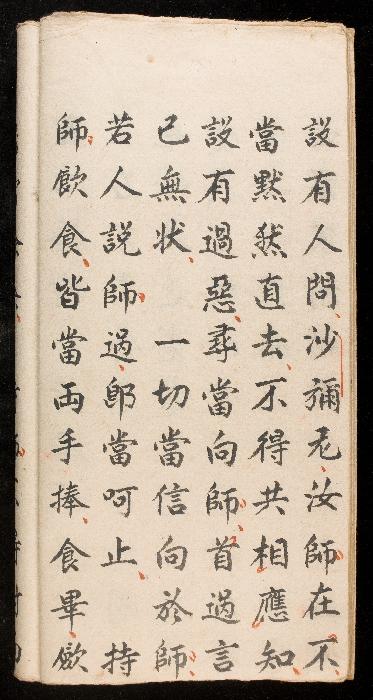 設有人問沙彌无汝師在不
當默然直去不得共相應知
設有過惡尋當向師首過言
已無狀 一切當信向於師
若人説師過即當呵止 持
師飲食皆當両手捧食畢斂